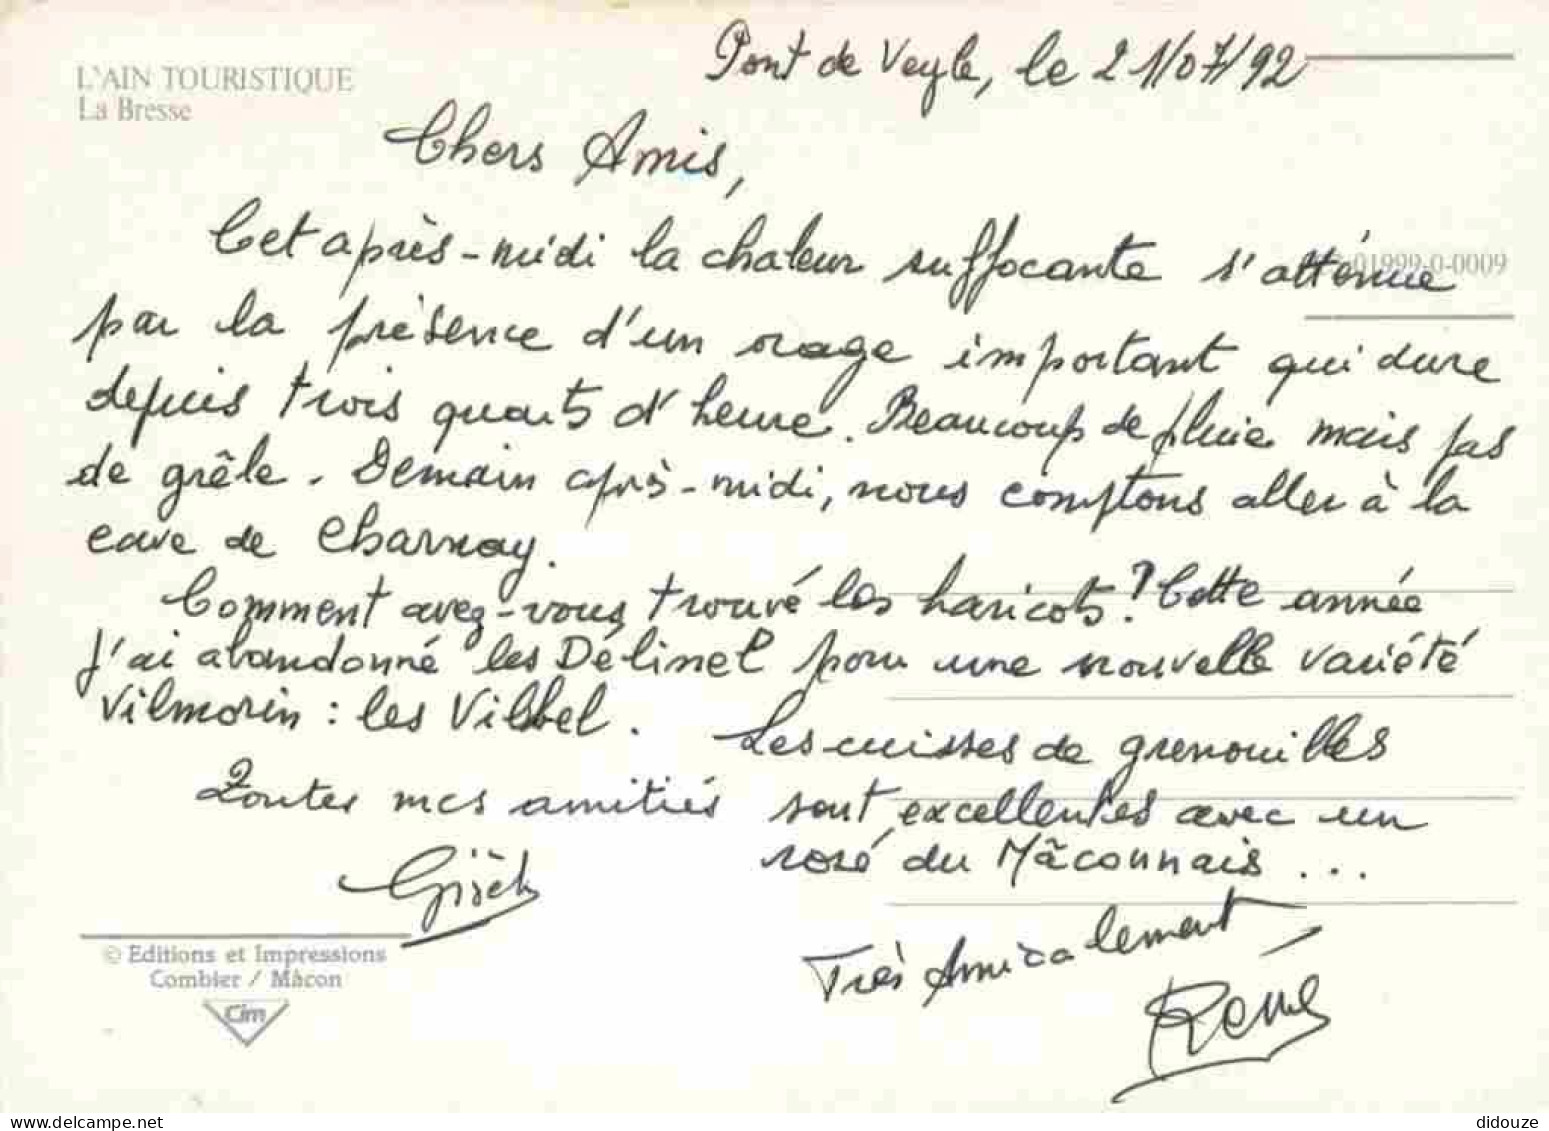 Pont de Veyle, le 21/07/92
L'AIN TOURISTIQUE
La Bresse
Chers Amis,
Cet après-midi la chaleur suffocante s'atténue
01999-0-0009
par la présence d'un orage important qui dure
depuis trois quarts d'heure. Beaucoup de pluie mais pas
de grêle. Demain après-midi, nous comptons aller à la
cave de Charnay.
Comment avez-vous trouvé les haricots ? Cette année
j'ai abandonné les Délinel pour une nouvelle variété
Vilmorin : les Vilbel.
Toutes mes amitiés
Gisèle
Les cuisses de grenouilles
sont excellentes avec un
rosé du Mâconnais ...
Très Amicalement
René
© Editions et Impressions
Combier / Mâcon
Cim
didouze